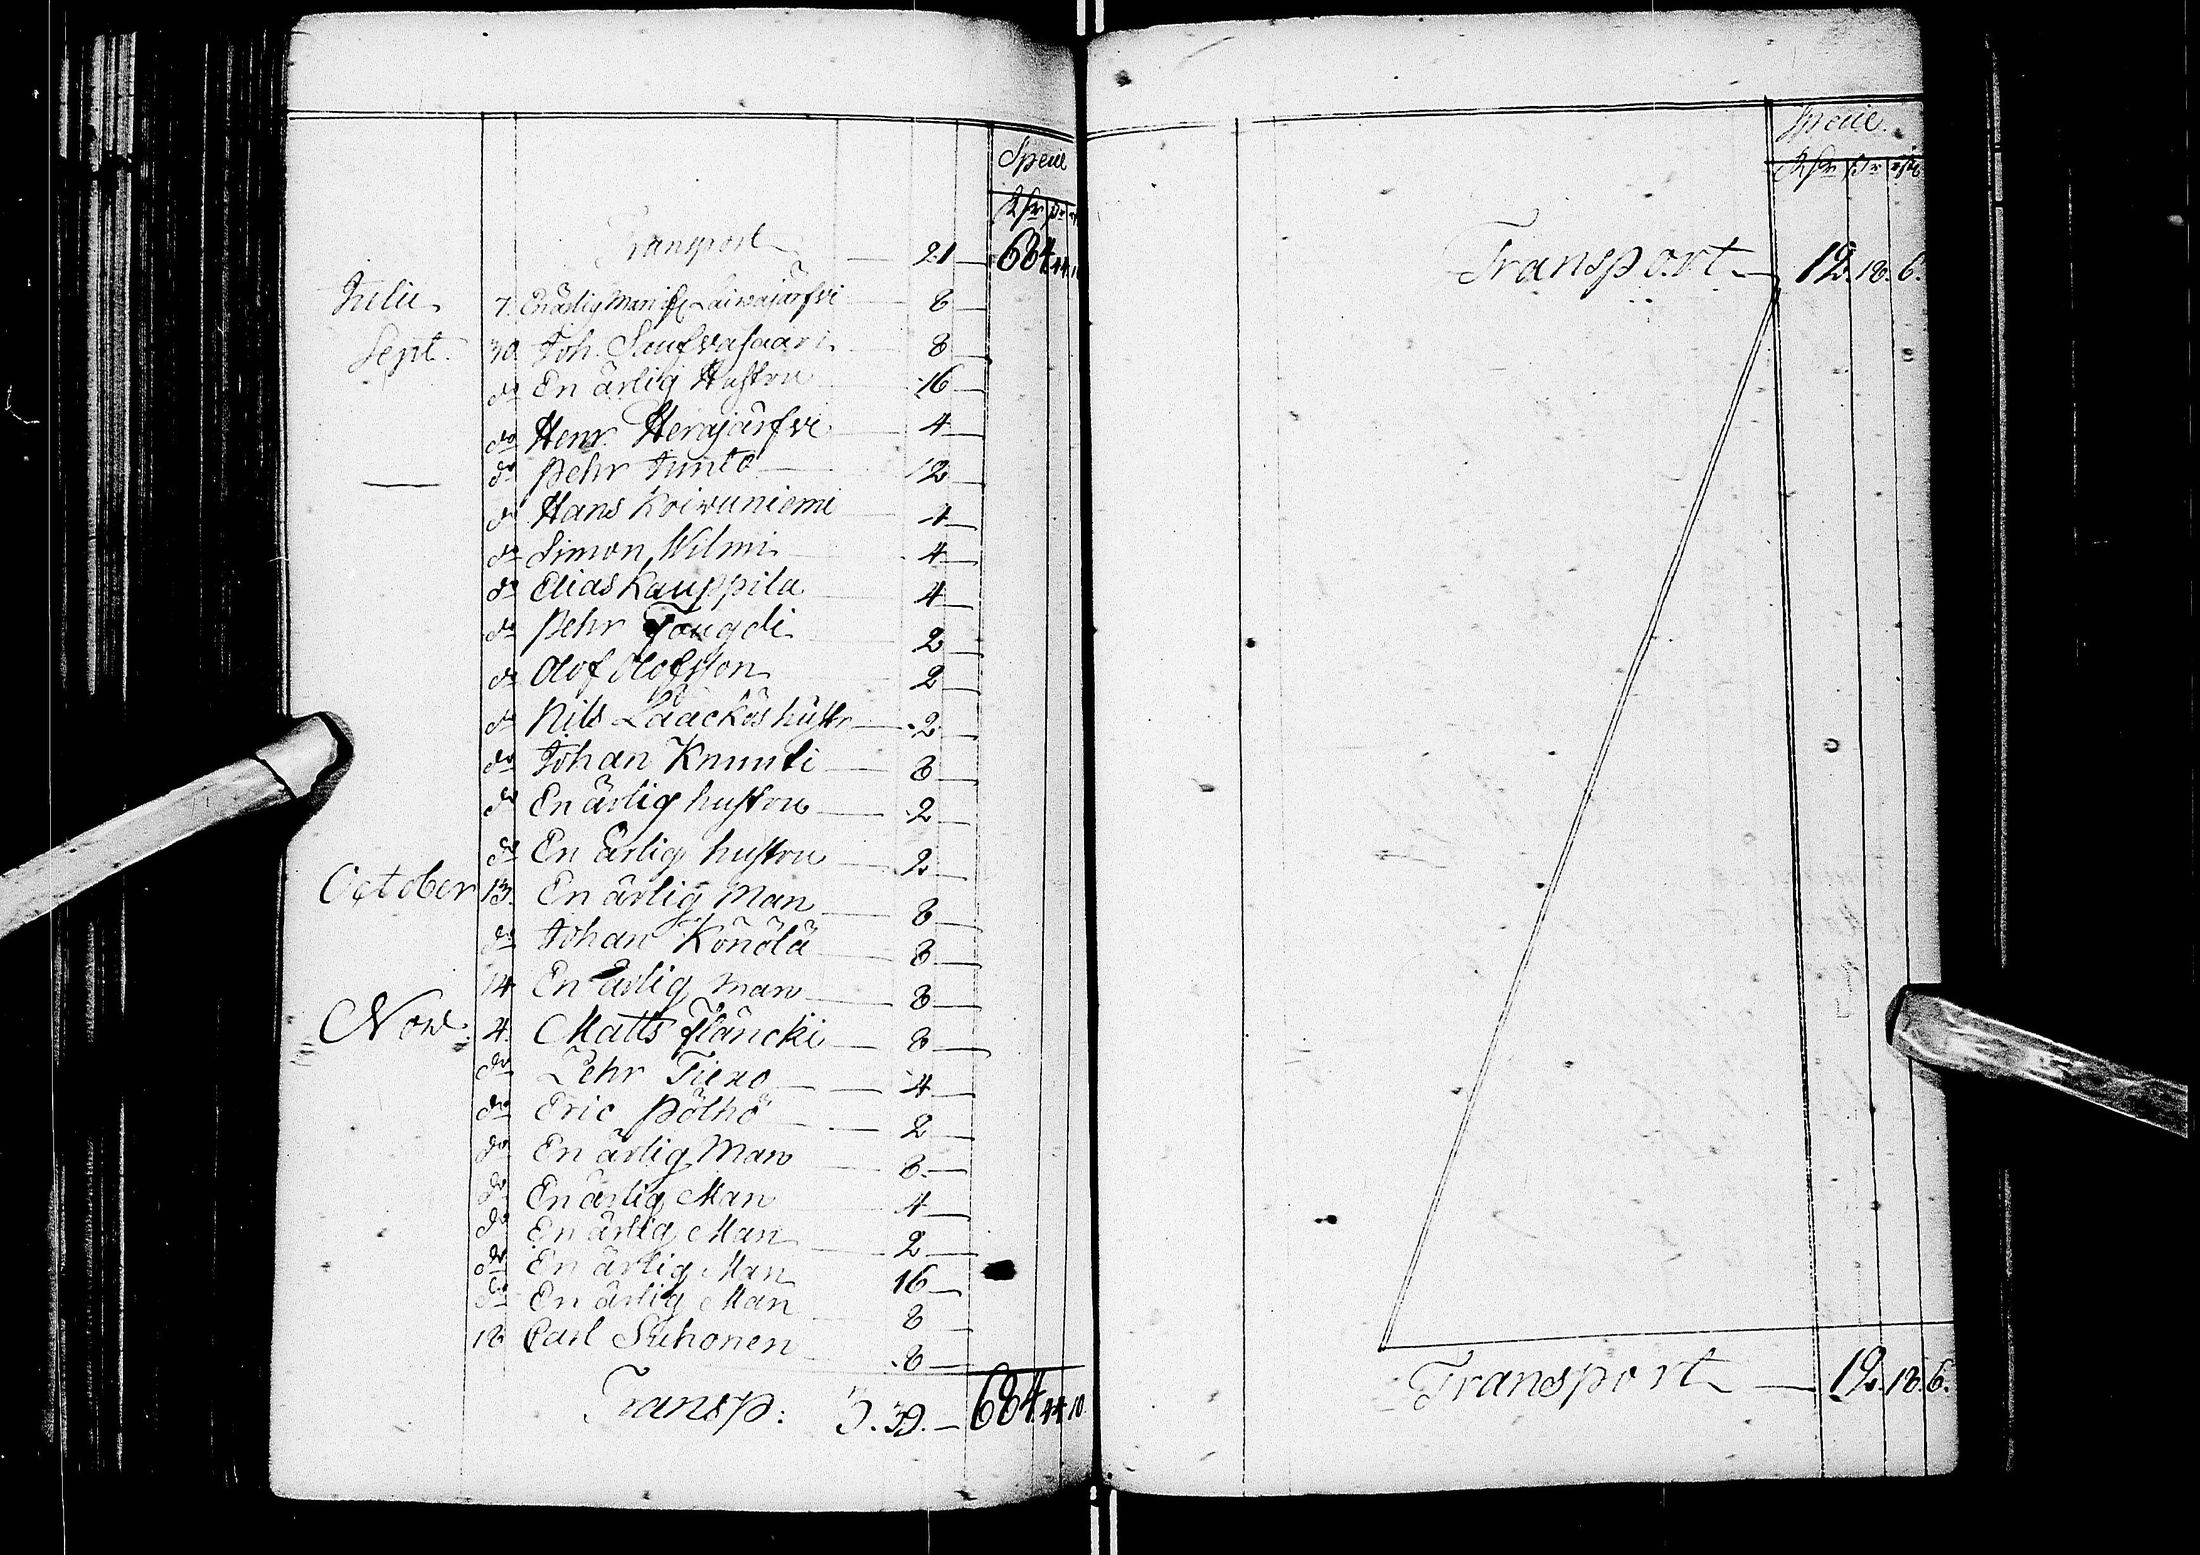 Specie
Rdr sk
Transport 21 684 44 10
Julii 7. En ärlig Man if Laiwajärfvi 8
Sept. 30. Joh. Saufwasaari 8
do En ärlig Hustru 16
do Henr. Herajärfvi 4
do Pehr Junto 12
do Hans Koiwuniemi 4
do Simon Wilmi 4
do Elias Kauppila 4
do Pehr 2
do Olof Olofsson 2
do Nils Lååckös hustr 2
do Johan Knuuti 8
do En ärlig hustru 2
do En ärlig hustru 2
October 13. En ärlig Man 8
do Johan Könölä 8
14 En ärlig man 8
Nov. 4. Matts Fläncki 8
do Pehr Tiero 4
do Eric Pölhö 2
do En ärlig Man 8
do En ärlig Man 4
do En ärlig Man 2
do En ärlig Man 16
do En ärlig Man 8
18 Carl Suhonen 8
Transp: 3. 39. 684 44 10
Specie
Rdr sk
Transport 12. 18. 6.
Transport 12. 18. 6.